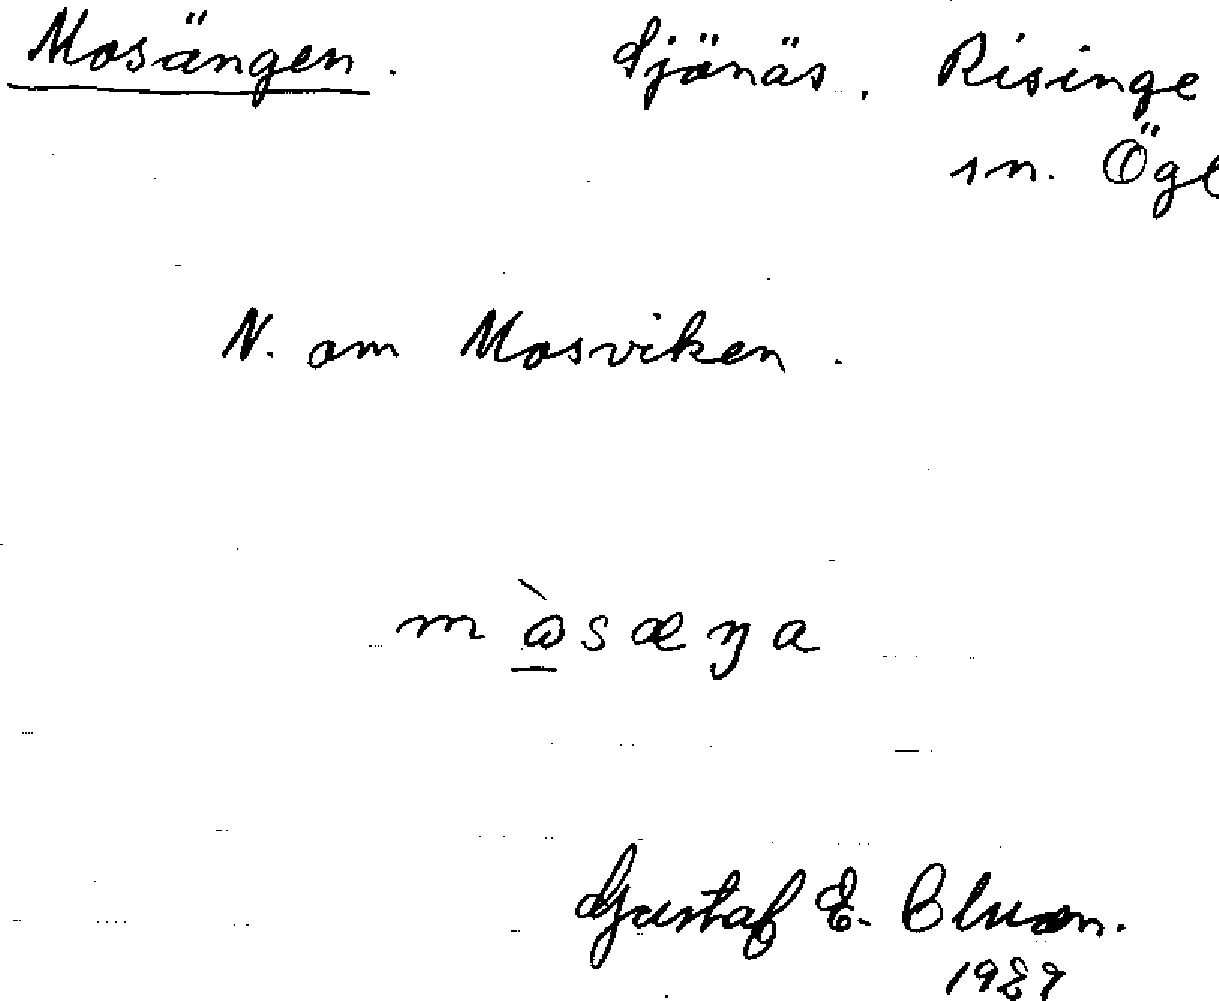 Mosängen. Sjönäs. Risinge
sn. Ögl
N. om Mosviken.
mὼsæŋa
Gustaf E. Bluon.
1929